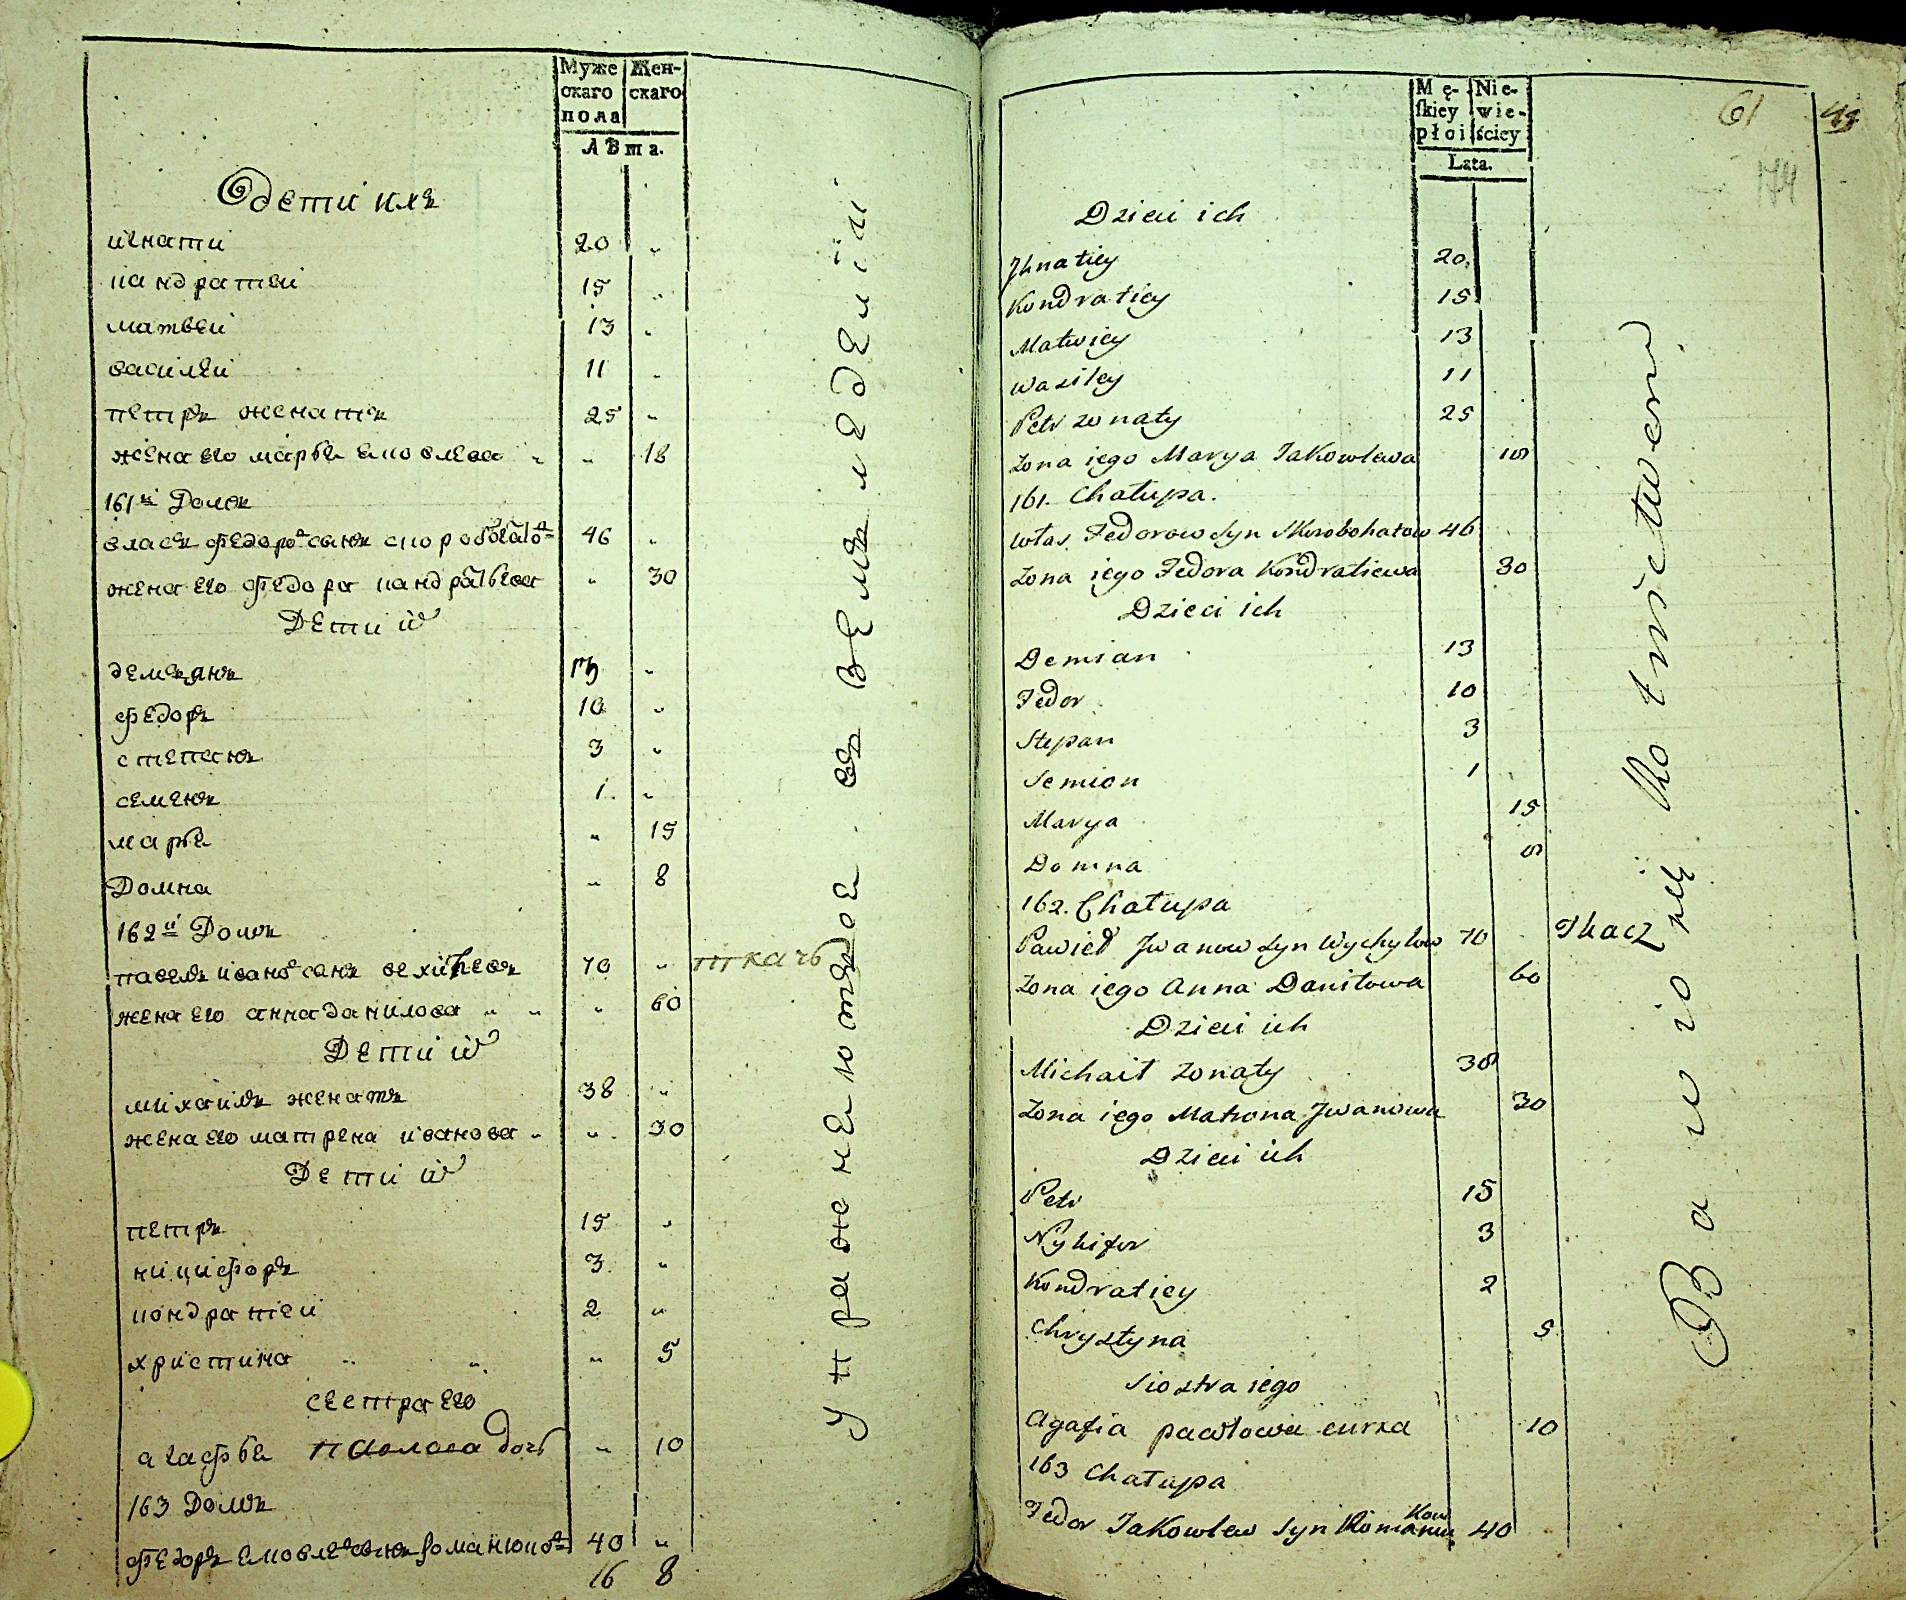 Муже Жен-
скаго скаго
пола
Лѣта.
дети ихъ
игнати 20 "
кандратеи 15 "
матвеи 13 "
василеи 11 "
петръ женатъ 25 "
жена его марья емовлева " " 18
161й Домъ
власъ федоровъ сынъ скоробогатовъ 46 "
жена его федора кандратьева " 30
Дети их
демьянъ 13 "
федоръ 10 "
степанъ 3 "
семенъ 1 "
марья " 15
Домна " 8
162й Домъ
павелъ ивановъ сынъ 70 " ткачь
жена его анна данилова " " " 60
Дети их
михаилъ женатъ 38 "
жена его матрена иванова " " 30
Дети их
петръ 15 "
никифоръ 3 "
кондратеи 2 "
христина " " " 5
сестра его
агафья павлова дочь " 10
163 Домъ
федоръ емовлевъ сынъ романюковъ 40 "
16 8
Упражнеются въ земледелiи
Mę- Nie-
ſkiey wie-
płci ściey
Lata.
61
174
Dzieci ich
Jhnatiey 20
Kondratiey 15
Matwiey 13
Wasiley 11
Petr zonaty 25
Zona iego Marya Jakowlewa 18
161. Chałupa.
Włas Fedorow Syn Skorobohatow 46
Zona iego Fedora Kondratiewa 30
Dzieci ich
Demian 13
Fedor 10
Stepan 3
Semion 1
Marya 15
Domna 8
162. Chałupa
Pawieł Jwanow Syn Wychyłow 70 Tkacz
Zona iego Anna Daniłowa 60
Dzieci ich
Michaił zonaty 38
Zona iego Matrona Jwanowa 30
Dzieci ich
Petr 15
Nykifor 3
Kondratiey 2
Chrystyna 5
Siostra iego
Agafia pawłowa curka 10
163 Chałupa
Fedor Jakowlew Syn Romaniukow 40
Bawią się Rolnictwem